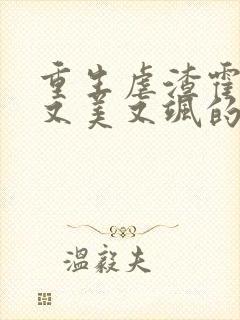 重生虐渣霍
又美又飒的
温毅夫